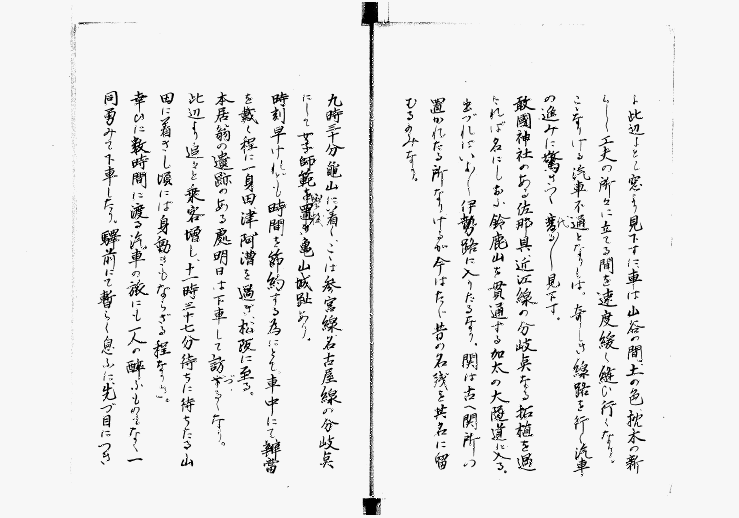 に此辺よりと窓より見下すに車は山谷の間、土の色、枕木の新
らし工夫の所々に立てる間を速度緩く縫ひ行くなり。
こなりける汽車不通となりしは、奇しき線路を行く汽車
の進みに驚きつゝ見下す。
敢國神社のある佐那具、近江線の分岐点なる柘植を過
ぐれば名にしおふ鈴鹿山を貫通する加太の大隧道に入る。
出づればいわゆ伊勢路に入りたるなり。関は古へ関所の
置かれたる所なりけるが今はたゞ昔の名残を其名に留
むるのみなり。
九時三十分亀山に着く。こゝは参宮線名古屋線の分岐点
にして女子師範学校亀山城趾あり。
時刻早けれども時間を節約する為にとて車中にて辨當
を戴く程に一身田、津、阿漕を過ぎ、松阪に至る。
本居翁の遺跡のある處明日は下車して訪づるなり。
此辺より追々と乗客増し、十一時三十七分待ちに待ちたる山
田に着きし頃には身動きもならざる程なりき。
幸ひに数時間に渡る汽車の旅にも一人の酔ふものもなく一
同勇みて下車したり。驛前にて暫らく息ふに、先づ目につき